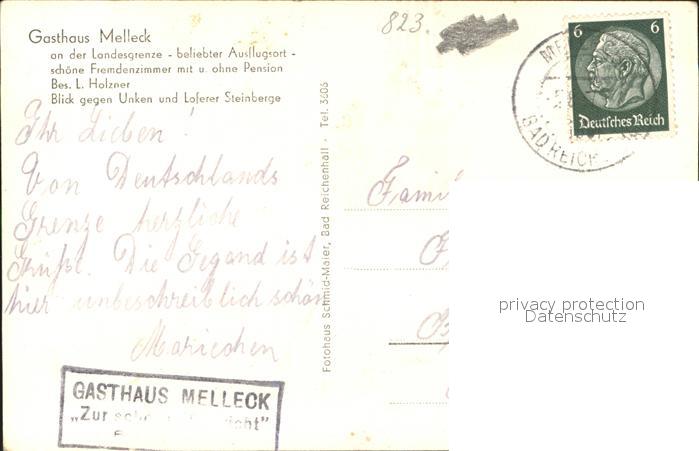 Gasthaus Melleck
an der Landesgrenze - beliebter Ausflugsort -
schöne Fremdenzimmer mit u. ohne Pension
Bes. L. Holzner
Blick gegen Unken und Loferer Steinberge
823.
6 6
Deutsches Reich
BAD REICH
Ihr Lieben!
Von Deutschlands
Grenze herzliche
Grüße. Die Gegend ist
hier unbeschreiblich schön
Mariechen
Fotohaus Schmid-Maier, Bad Reichenhall - Tel. 3606
Fami
privacy protection
Datenschutz
GASTHAUS MELLECK
„Zur